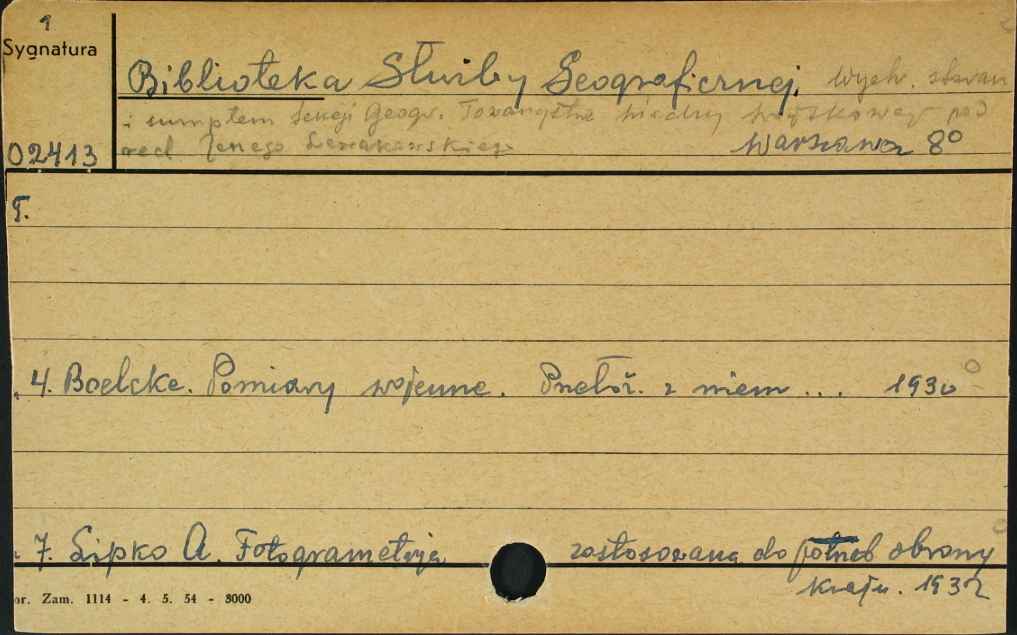 9
Sygnatura
Biblioteka Służby Geograficznej. Wych. staran
i sumptem Sekcji Geogr. Towarzystwa wiedzy wojskowej pod
02413 red Jerzego Lewakowskiego Warszawa 8°
T.
4. Boelcke. Pomiary wojenne. Przełoż. z niem ... 1930
7. Lipko A. Fotogrametrja zastosowana do potrzeb obrony
kraju. 1932
or. Zam. 1114 - 4. 5. 54 - 3000